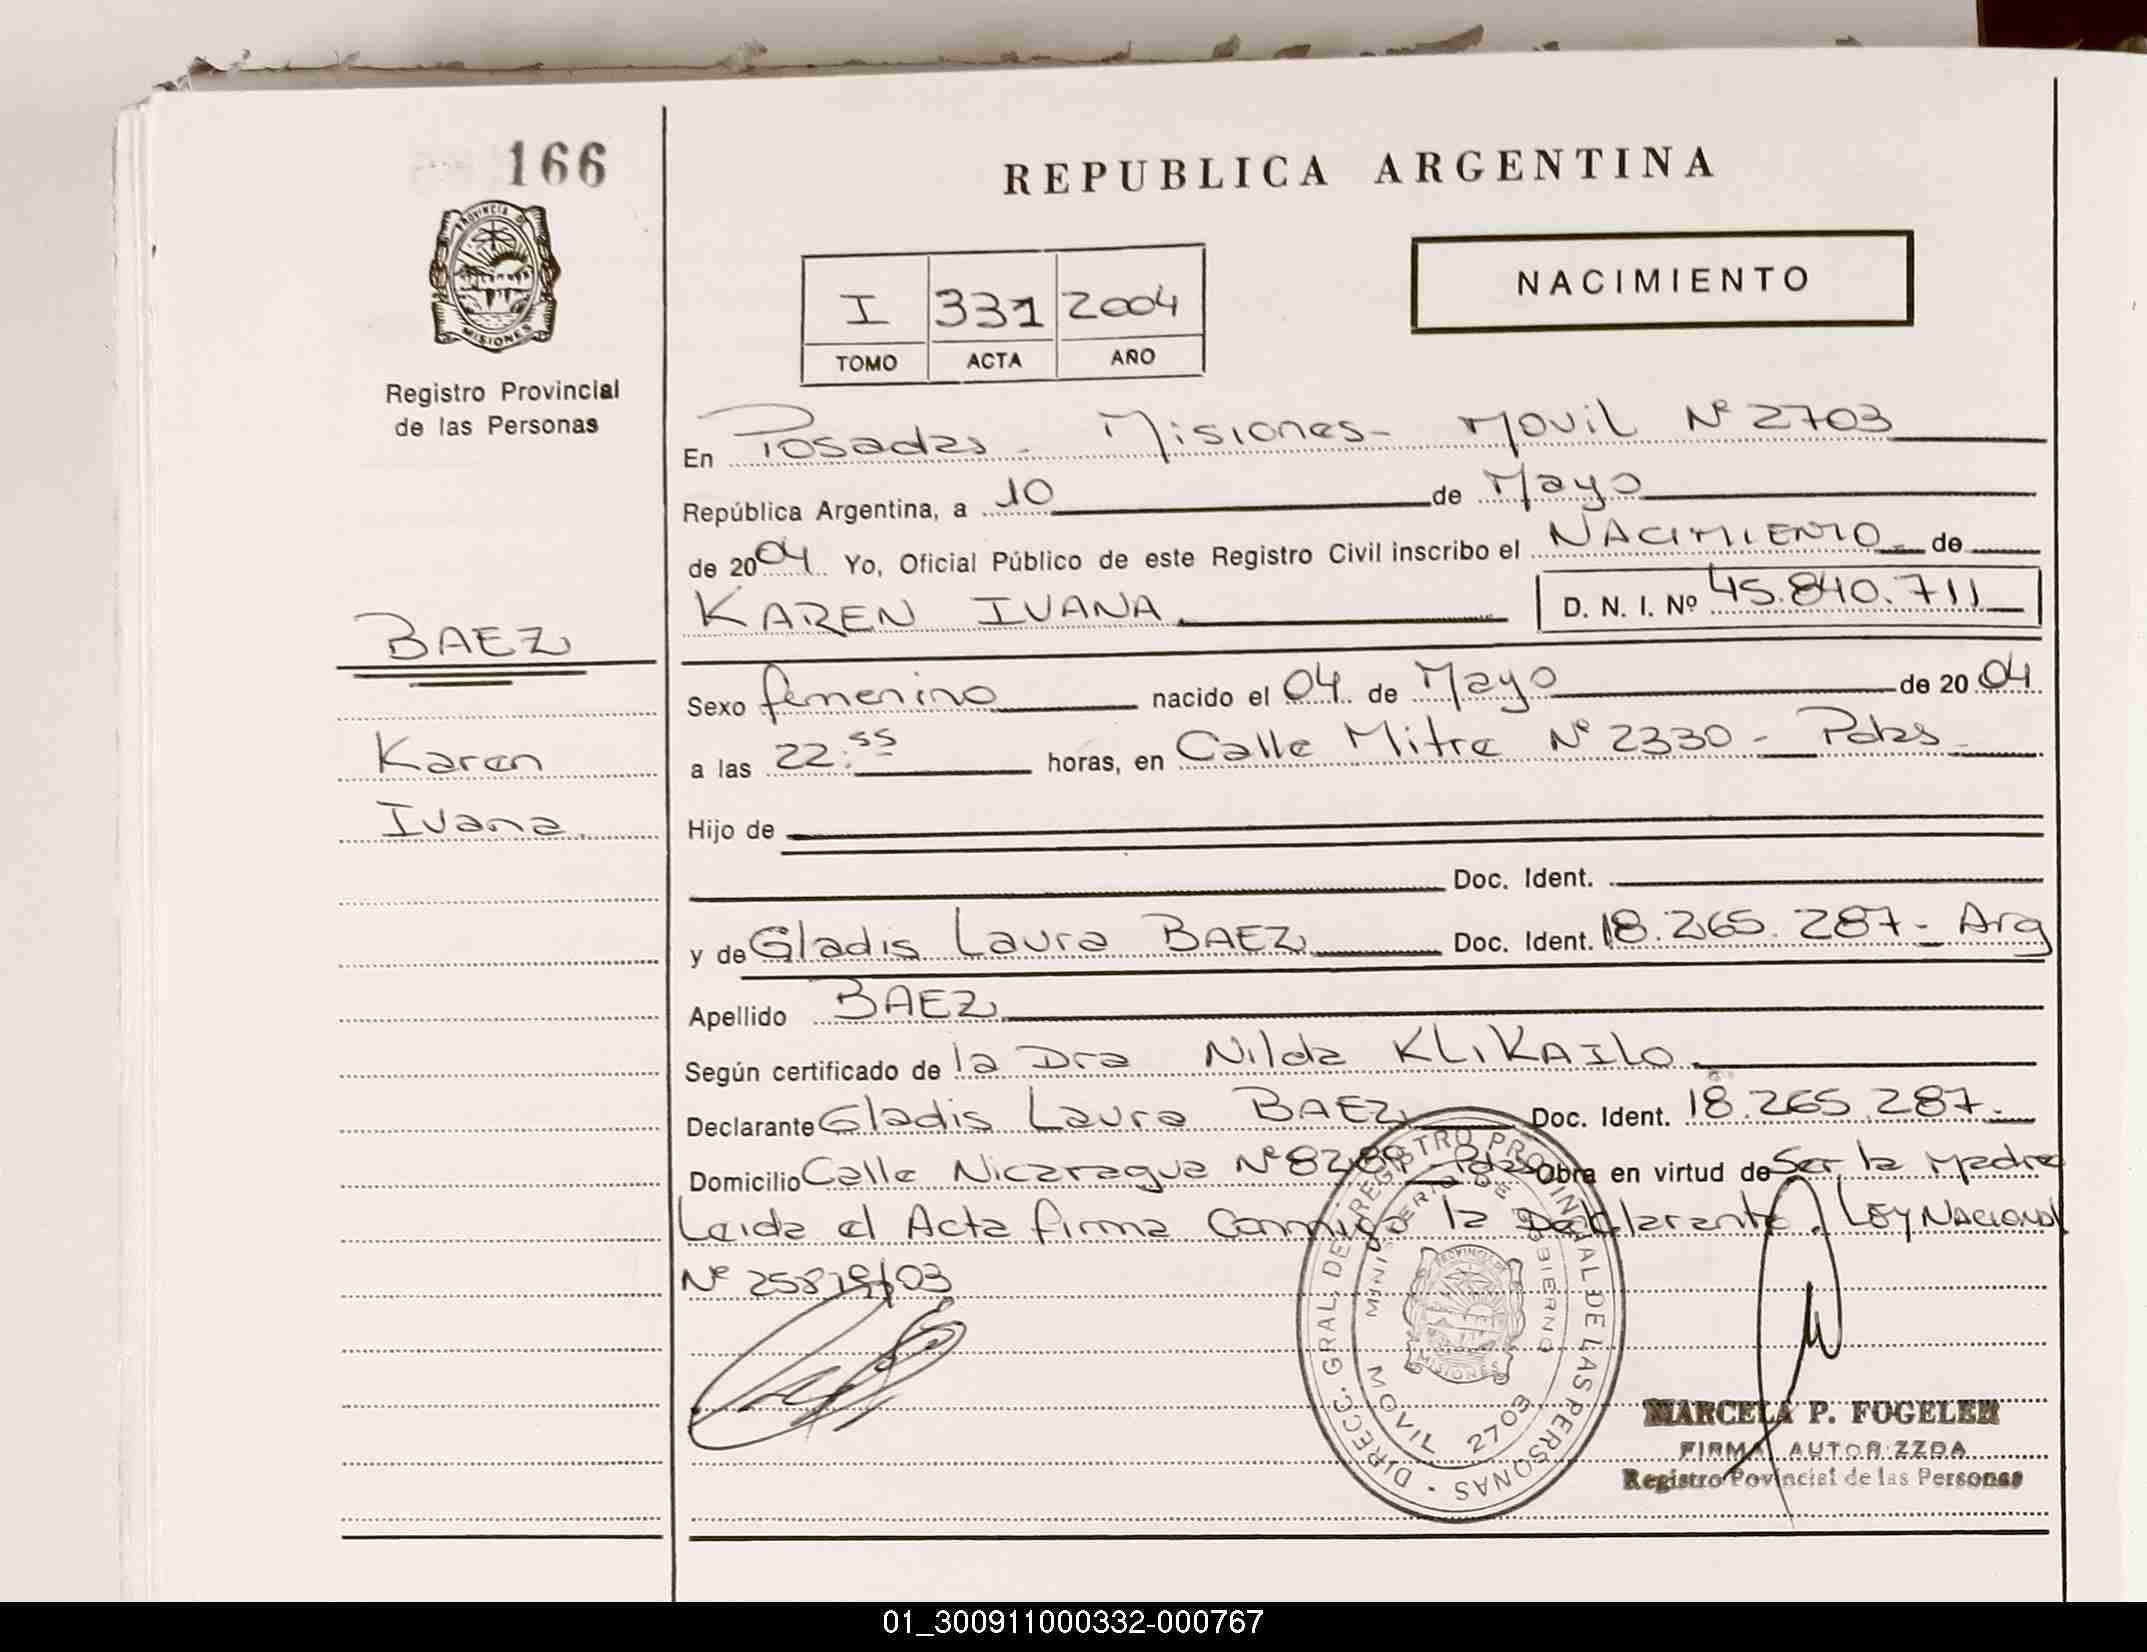 166
REPUBLICA ARGENTINA
PROVINCIA D
MISIONES
Registro Provincial
de las Personas
NACIMIENTO
I 331 2004
TOMO ACTA AÑO
En Posadas - Misiones - Movil Nº 2703
República Argentina, a 10 de Mayo
de 2004 Yo, Oficial Público de este Registro Civil inscribo el NACIMIENTO de
KAREN IVANA D. N. I. Nº 45.840.711
BAEZ
Karen
Ivana
Sexo femenino nacido el 04 de Mayo de 2004
a las 22:55 horas, en Calle Mitre Nº 2330 - Pdas
Hijo de
Doc. Ident.
y de Gladis Laura BAEZ Doc. Ident. 18.265.287 - Arg
Apellido BAEZ
Según certificado de la Dra Nilda KLIKAILO
Declarante Gladis Laura BAEZ Doc. Ident. 18.265.287.
Domicilio Calle Nicaragua Nº Pdas Obra en virtud de Ser la Madre
Leida el Acta firma Conmigo la Declarante. LEY NACIONAL
Nº 25819/03
DIRECC. GRAL. DE REGISTRO PROVINCIAL DE LAS PERSONAS
MINISTERIO DE GOBIERNO
PROVINCIA
MISIONES
MOVIL 2703
MARCELA P. FOGELER
FIRMA AUTORIZZDA
Registro Povincial de las Personas
01_300911000332-000767